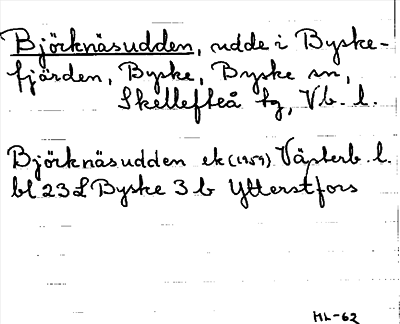 Björknäsudden, udde i Byske-
fjärden, Byske, Byske sn,
Skellefteå tg, Vb. l.
Björknäsudden ek (1959) Västerb. l.
bl 23 L Byske 3 b Ytterstfors
HL-62